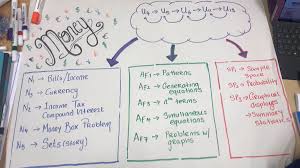 Money
U4 → U5 → U1 → U13
N1 → Bills/Income
N2 → Currency
N3 → Income Tax
Compound Interest
N4 → Money Box Problem
N5 → Sets (survey)
AF1 → Patterns
AF2 → Generating
equations
AF3 → nth terms
AF4 → Simultaneous
equations
AF7 → Problems w/
graphs
SP1 → Sample
Space
SP2 → Probability
SP3 → Graphical
displays
→ Summary
Statistics